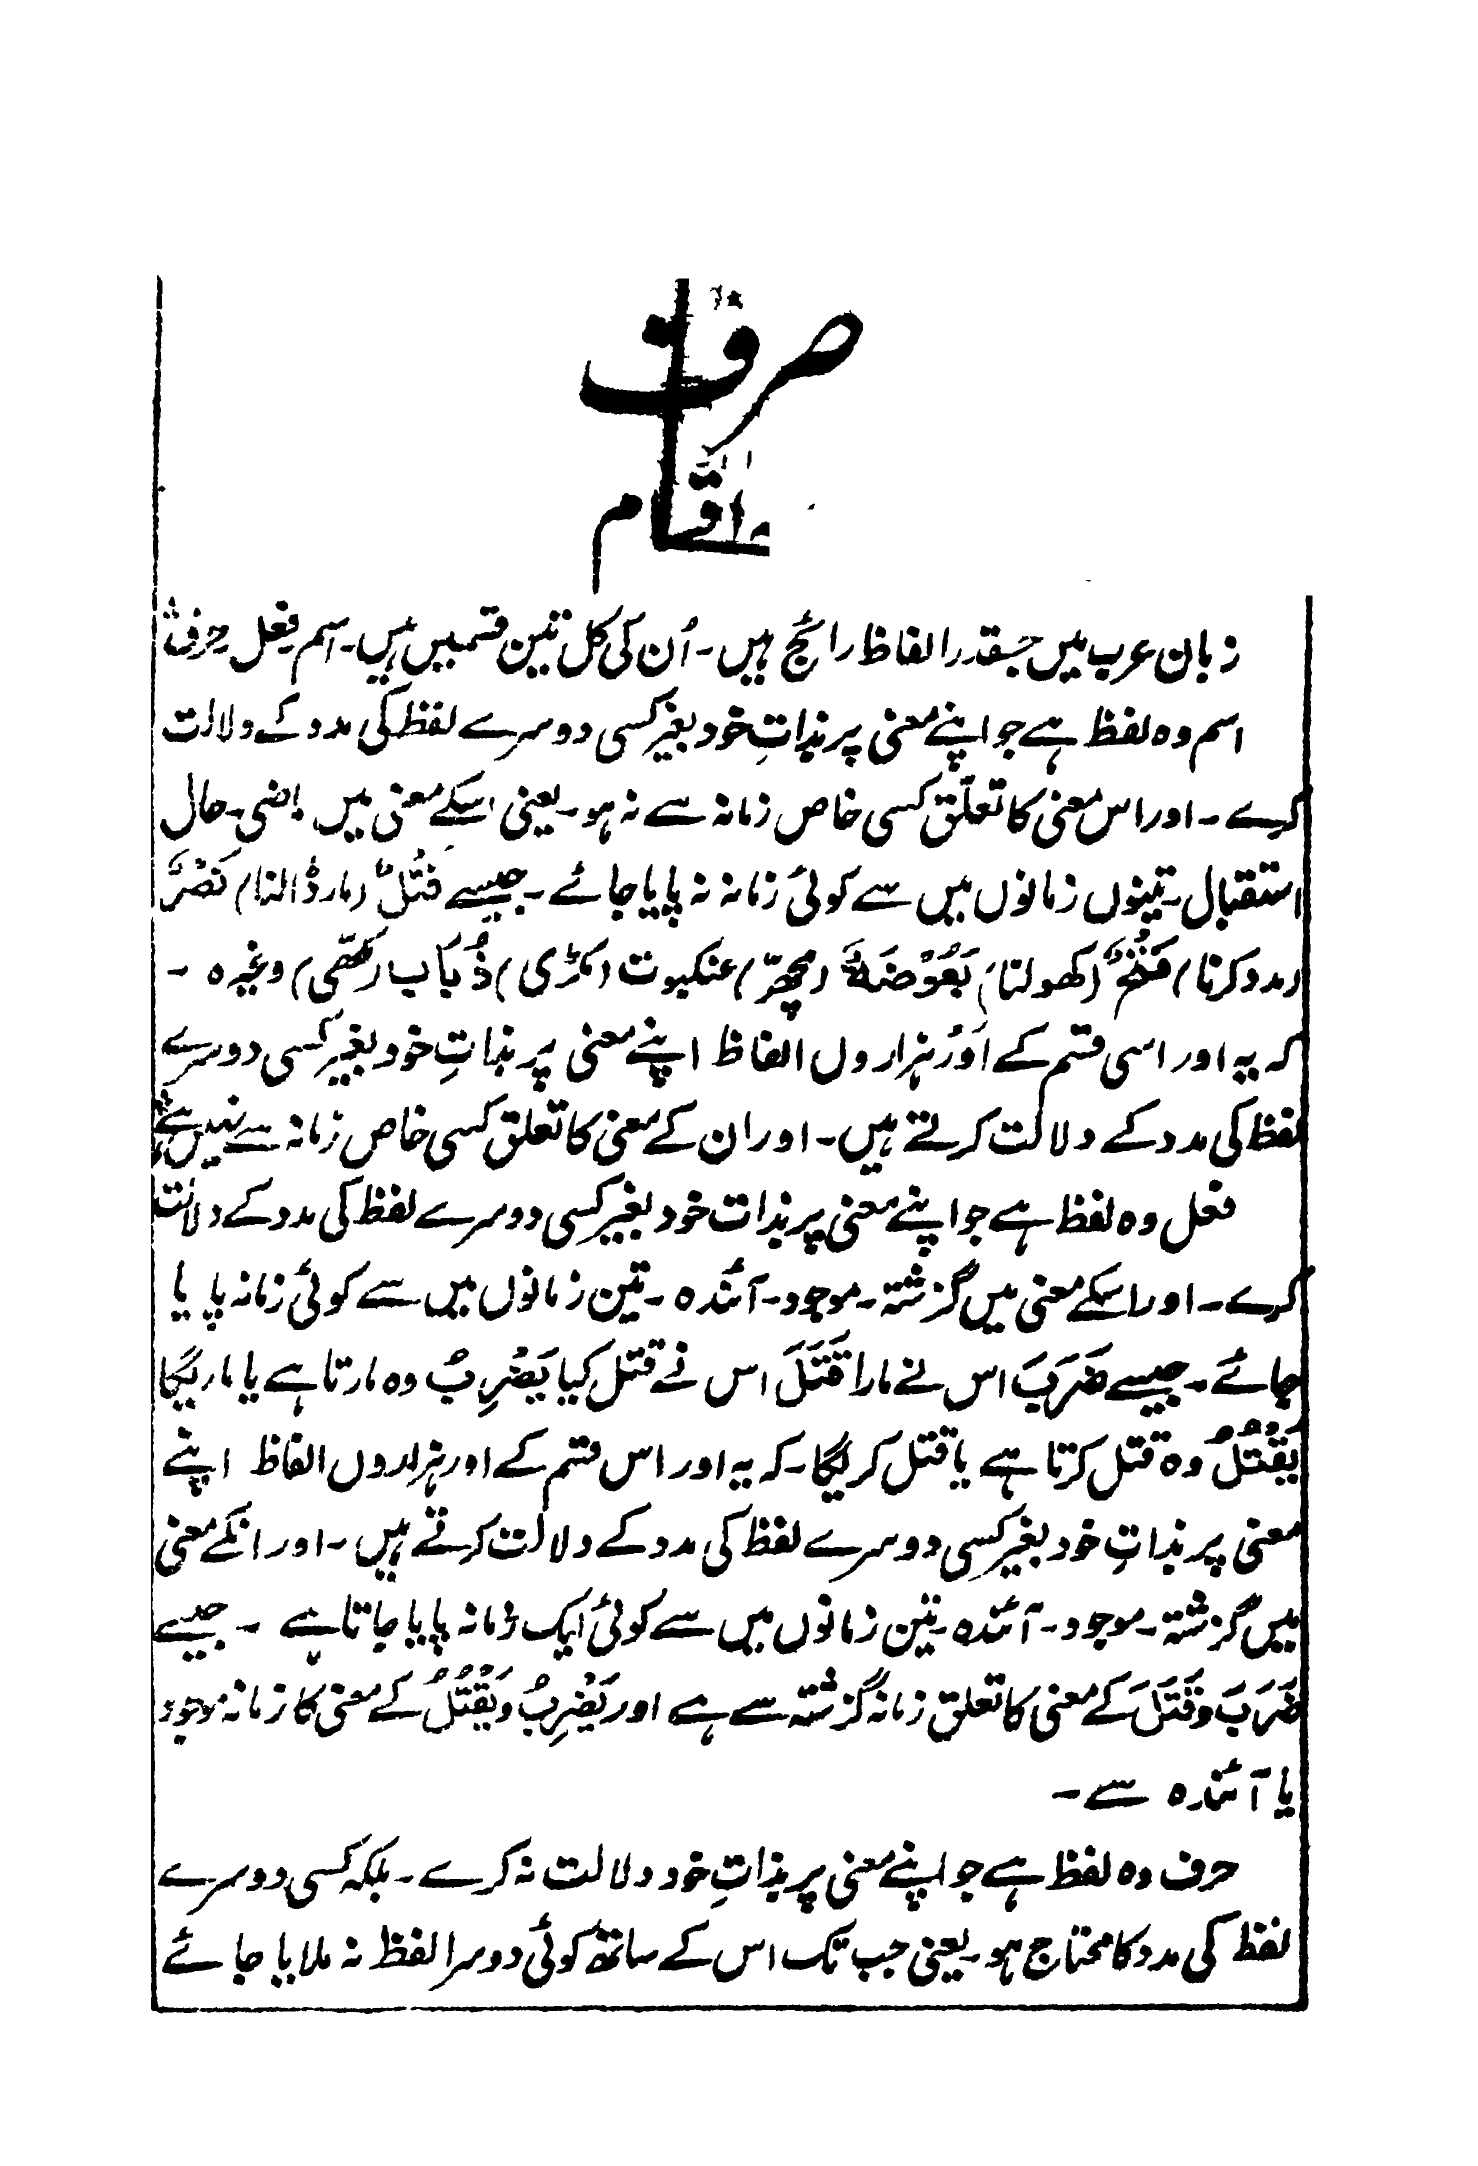 صرف
اقسام
زبان عرب میں جسقدر الفاظ رائج ہیں۔ اُن کی کل تین قسمیں ہیں۔ اسم۔ فعل۔ حرف
اسم وہ لفظ ہے جو اپنے معنی پر بذاتِ خود بغیر کسی دوسرے لفظ کی مدد کے دلالت
کرے۔ اور اس معنی کا تعلّق کسی خاص زمانہ سے نہ ہو۔ یعنی اسکے معنی میں ماضی۔ حال
استقبال۔ تینوں زمانوں میں سے کوئی زمانہ نہ پایا جائے۔ جیسے قَتْلٌ (مار ڈالنا) نَصْرٌ
(مدد کرنا) فَتْحٌ (کھولنا) بَعُوْضَةٌ (مچھّر) عنکبوت (مکڑی) ذُبَاب (مکھّی) وغیرہ ۔
کہ یہ اور اسی قسم کے اَور ہزاروں الفاظ اپنے معنی پر بذاتِ خود بغیر کسی دوسرے
لفظ کی مدد کے دلالت کرتے ہیں۔ اور ان کے معنی کا تعلق کسی خاص زمانہ سے نہیں ہے
فعل وہ لفظ ہے جو اپنے معنی پر بذات خود بغیر کسی دوسرے لفظ کی مدد کے دلالت
کرے۔ اور اسکے معنی میں گزشتہ۔ موجود۔ آئندہ ۔ تین زمانوں میں سے کوئی زمانہ پایا
جائے۔ جیسے ضَرَبَ اس نے مارا قَتَلَ اس نے قتل کیا یَضْرِبُ وہ مارتا ہے یا ماریگا
یَقْتُلُ وہ قتل کرتا ہے یا قتل کریگا۔ کہ یہ اور اس قسم کے اور ہزاروں الفاظ اپنے
معنی پر بذاتِ خود بغیر کسی دوسرے لفظ کی مدد کے دلالت کرتے ہیں۔ اور انکے معنی
میں گزشتہ۔ موجود۔ آئندہ۔ تین زمانوں میں سے کوئی ایک زمانہ پایا جاتا ہے ۔ جیسے
ضَرَبَ وقَتَلَ کے معنی کا تعلق زمانہ گزشتہ سے ہے اور یَضْرِبُ ویَقْتُلُ کے معنی کا زمانہ موجود
یا آئندہ سے ۔
حرف وہ لفظ ہے جو اپنے معنی پر بذاتِ خود دلالت نہ کرے۔ بلکہ کسی دوسرے
لفظ کی مدد کا محتاج ہو۔ یعنی جب تک اس کے ساتھ کوئی دوسرا لفظ نہ ملایا جائے